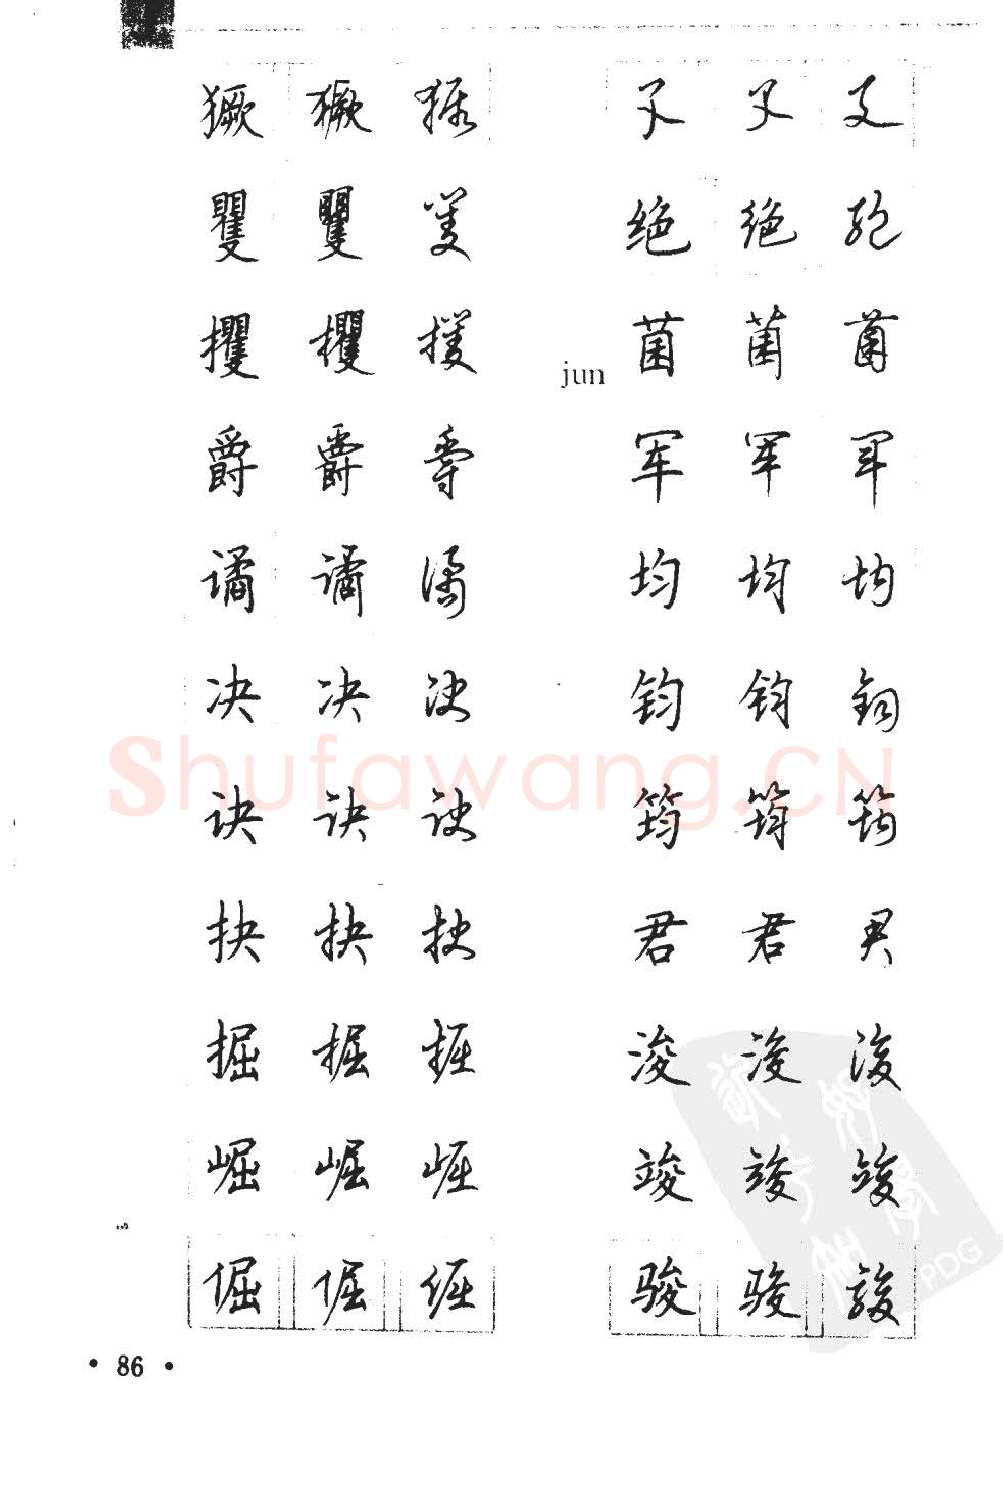 獗 獗 獗 孓 孓 孓
矍 矍 矍 绝 绝 绝
攫 攫 攫 jun 菌 菌 菌
爵 爵 爵 军 军 军
谲 谲 谲 均 均 均
决 决 决 钧 钧 钧
诀 诀 诀 筠 筠 筠
抉 抉 抉 君 君 君
掘 掘 掘 浚 浚 浚
崛 崛 崛 竣 竣 竣
倔 倔 倔 骏 骏 骏
• 86 •
Shufawang.CN
PDG